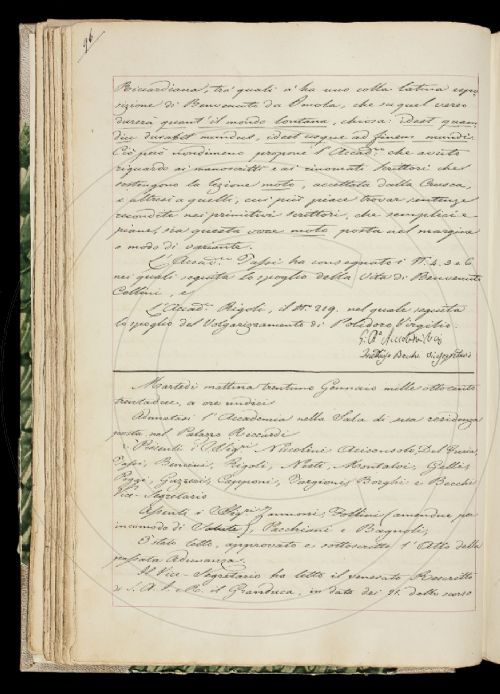 26
Riccardiana, tra' quali v'ha uno colla latina espo-
sizione di Benvenuto da Imola, che su quel verso
durerà quant' il mondo lontana, chiosa: idest quam-
diu durabit mundus, idest usque ad finem mundi.
Ciò però nondimeno propone l'Accad.co che avuto
riguardo ai manoscritti e ai rinomati scrittori che
sostengono la lezione moto, accettata dalla Crusca,
e altresì a quelli, cui può piace trovar sentenze
recondite nei primitivi scrittori, che semplici e
piane, sia questa voce moto posta nel margine
a modo di variante.
L'Accad.co Tassi ha consegnato i N.i 4. 5 e 6
nei quali seguita lo spoglio della Vita di Benvenuto
Cellini, e
L'Accad.co Rigoli, il N.o 219. nel quale seguita
lo spoglio del Volgarizzamento di Polidoro Virgilio.
Martedì mattina trentuno Gennaio mille ottocento
trentadue, a ore undici
Adunatasi l'Accademia nella Sala di sua residenza
posta nel Palazzo Riccardi
Presenti i Sig.ri Niccolini Arciconsolo, Del Furia,
Tassi, Bencini, Rigoli, Nesti, Montalvi, Gelli,
Poggi, Gazzeri, Capponi, Targioni, Borghi e Becchi
Vice-Segretario
Assenti i Sig.ri Zannoni, Follini (amendue per
incomodo di Salute), Pacchioni e Bagnoli,
È stato letto, approvato e sottoscritto l'Atto della
passata Adunanza.
Il Vice-Segretario ha letto il venerato Rescritto
di S. A. I. e R. il Granduca, in data dei 21. dello scorso